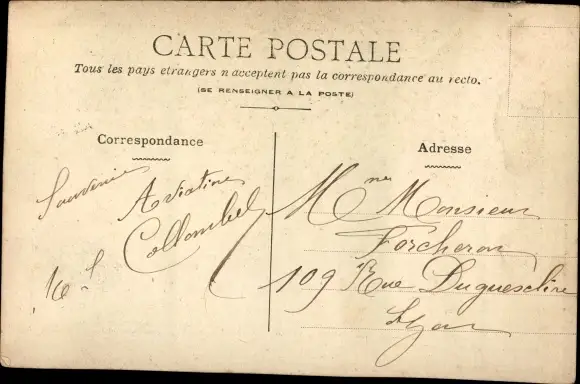 CARTE POSTALE
Tous les pays etrangers n'acceptent pas la correspondance au recto.
(SE RENSEIGNER A LA POSTE)
Correspondance
Souvenir
Aviation
Collombel
Adresse
Mme Monsieur
Forcheron
109 Rue Duguescline
Lyon